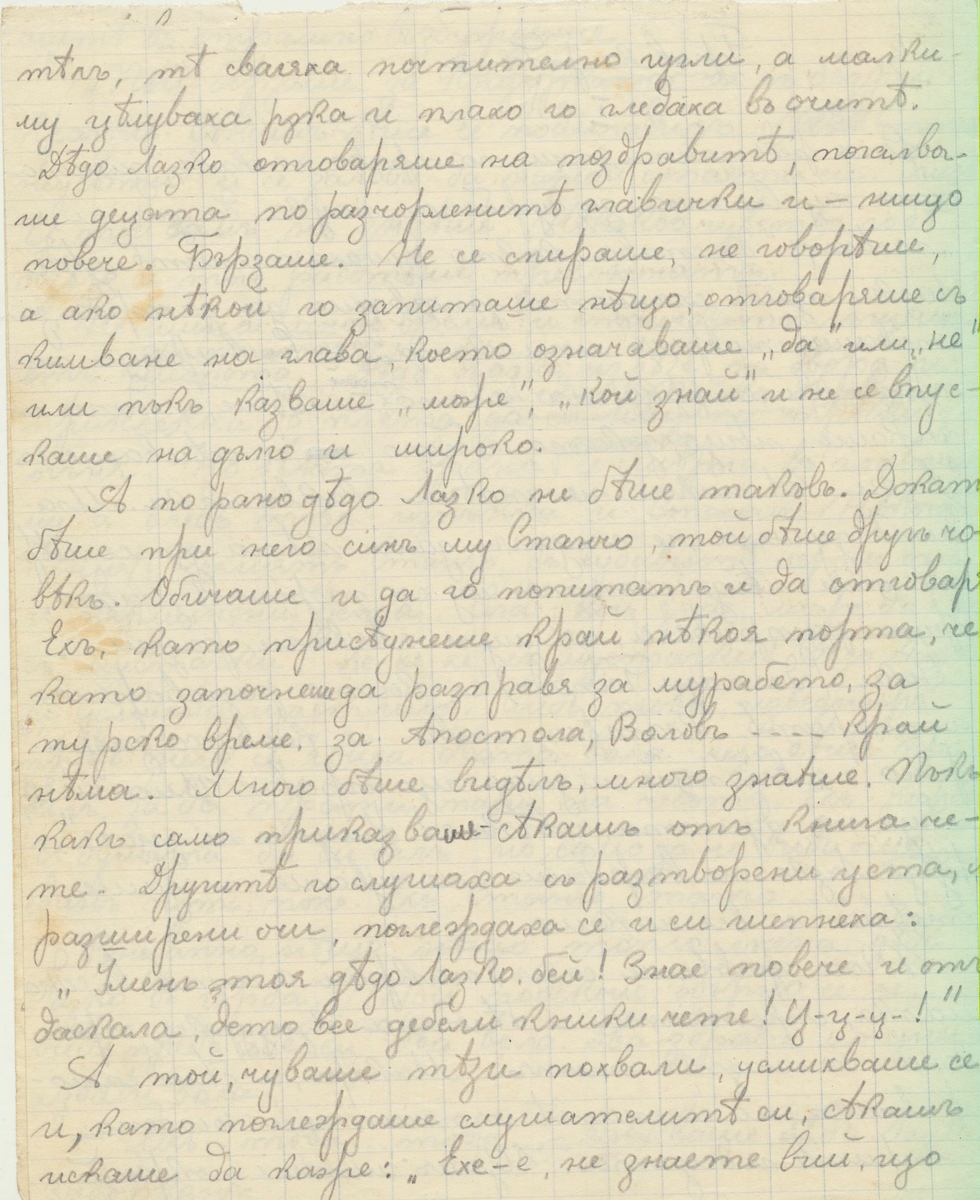 тѣлъ, тѣ сваляха почтително гугли, а малки-
му цѣлуваха рѫка и плахо го гледаха въ очитѣ.
Дѣдо Лазко отговаряше на поздравитѣ, погалва-
ше децата по разчорленитѣ главички и – нищо
повече. Бързаше. Не се спираше, не говорѣше,
а ако нѣкой го запиташе нѣщо, отговаряше съ
кимване на глава, което означаваше „да" или „не"
или пъкъ казваше „може", „кой знай" и не се впус-
каше на дълго и широко.
А по рано дѣдо Лазко не бѣше такъвъ. Докат
бѣше при него синъ му Станчо, той бѣше другъ чо-
вѣкъ. Обичаше и да го попитатъ и да отговаря
Ехъ, като присѣднеше край нѣкоя порта, че
като започнеше да разправя за мурабето, за
турско време, за Апостола, Воловъ ---- край
нѣма. Много бѣше видѣлъ, много знаѣше. Пъкъ
какъ само приказваше - сѣкашъ отъ книга че-
те. Другитѣ го слушаха съ разтворени уста, с
разширени очи, поглеждаха се и си шепнеха:
„Уменъ тоя дѣдо Лазко, бей! Знае повече и отъ
даскала, дето все дебели книги чете! Ц-ц-ц-!"
А той, чуваше тѣзи похвали, усмихваше се
и, като поглеждаше слушателитѣ си, сѣкашъ
искаше да каже: „Ехе-е, не знаете вий, що